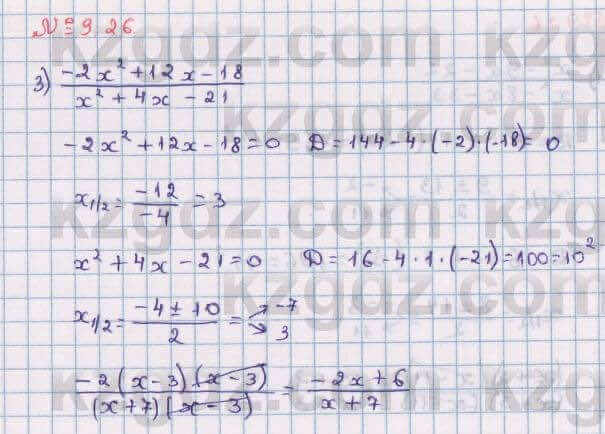 № 9.26
3) (-2x² + 12x - 18)/(x² + 4x - 21)
-2x² + 12x - 18 = 0 D = 144 - 4 · (-2) · (-18) = 0
x₁/₂ = -12/-4 = 3
x² + 4x - 21 = 0 D = 16 - 4 · 1 · (-21) = 100 = 10²
x₁/₂ = (-4 ± 10)/2 = -7
3
(-2(x-3)(x-3))/((x+7)(x-3)) = (-2x+6)/(x+7)
kzgdz.com